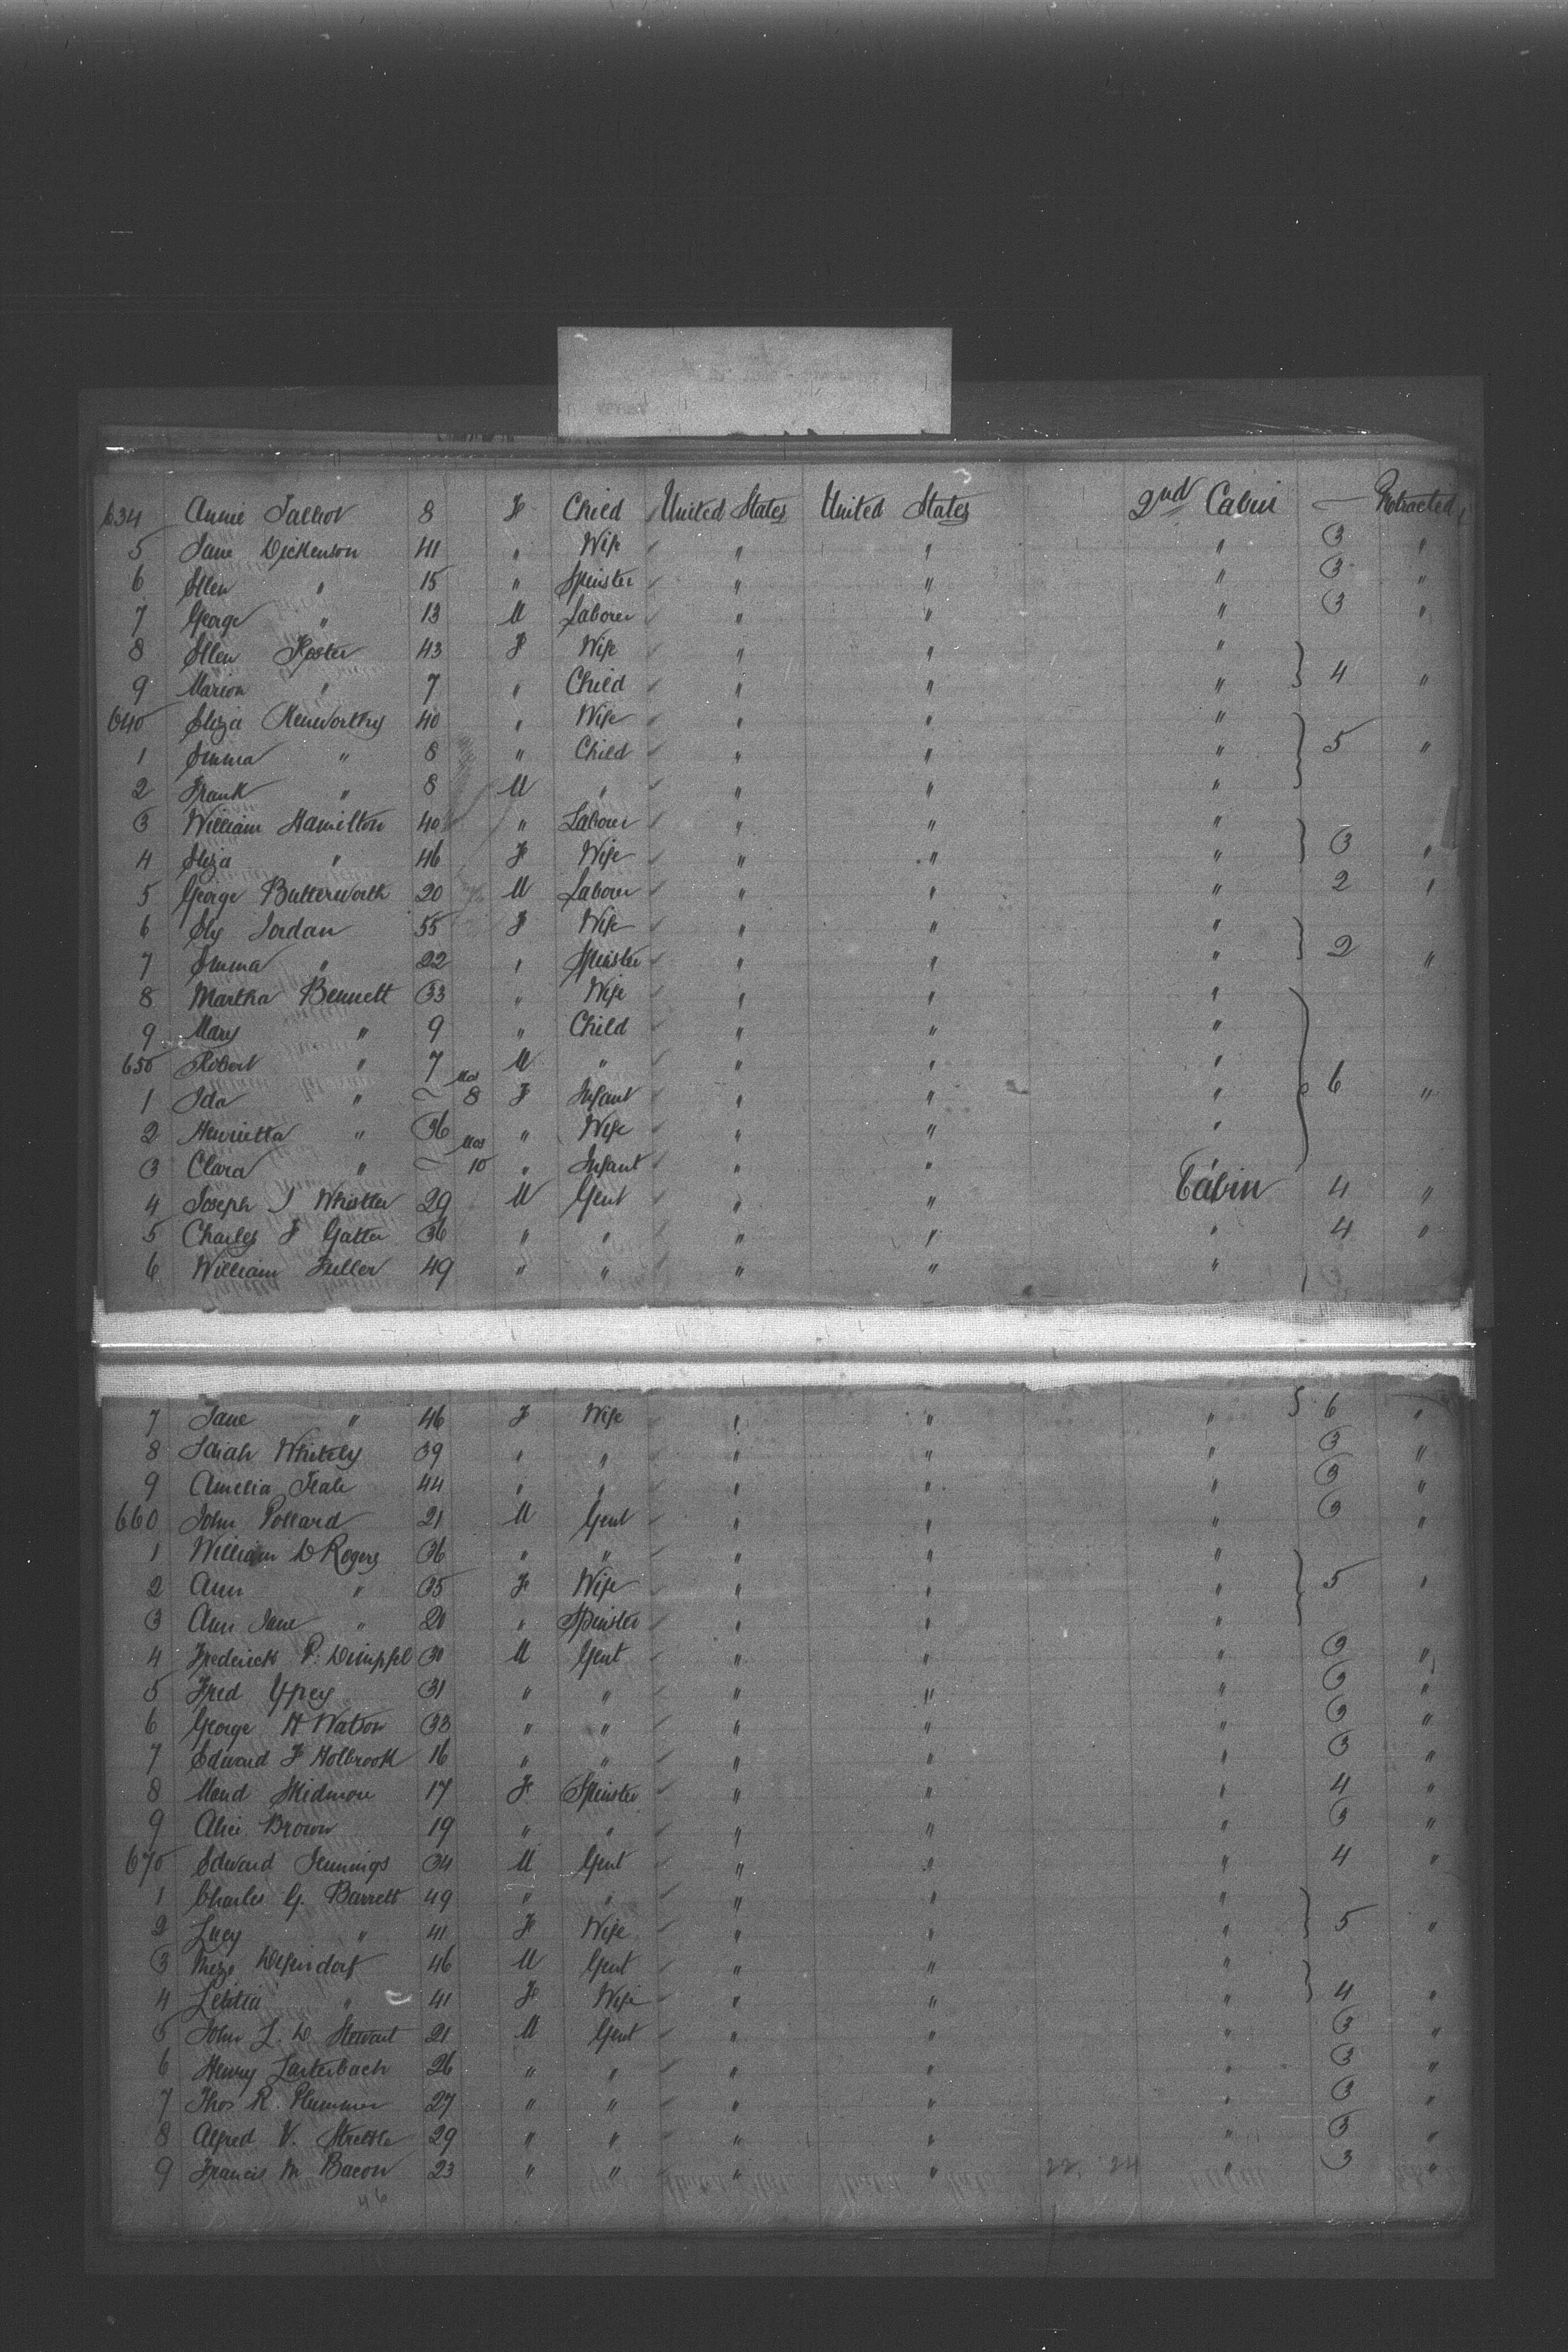 634 Annie Talbot 8 F Child United States United States 2nd Cabin — Protracted
5 Jane Dickenson 41 " Wife " " " 3 "
6 Ellen " 15 " Spinster " " " 3 "
7 George " 13 M Laborer " " " 3 "
8 Ellen Foster 43 F Wife " " "
9 Marion " 7 " Child " " " 4 "
640 Eliza Kenworthy 40 " Wife " " "
1 Emma " 8 " Child " " " 5 "
2 Frank " 8 M " " " "
3 William Hamilton 40 " Laborer " " "
4 Eliza " 46 F Wife " " " 3 "
5 George Butterworth 20 M Laborer " " " 2 "
6 Ely Jordan 55 F Wife " " "
7 Emma " 22 " Spinster " " " 2 "
8 Martha Bennett 33 " Wife " " "
9 Mary " 9 " Child " " "
650 Robert " 7 M " " " "
1 Ida " — Mos 8 F Infant " " " 6 "
2 Henrietta " 36 " Wife " " "
3 Clara " — Mos 10 " Infant " " "
4 Joseph J Whistler 29 M Gent " " Cabin 4 "
5 Charles F Gatter 36 " " " " " 4 "
6 William Fuller 49 " " " " "
7 Jane " 46 F Wife " " " 6 "
8 Sarah Whitely 39 " " " " " 3 "
9 Amelia Teale 44 " " " " " 3 "
660 John Pollard 21 M Gent " " " 3 "
1 William D Rogers 36 " " " " "
2 Ann " 35 F Wife " " " 5 "
3 Ann Jane " 20 " Spinster " " "
4 Frederick P. Dimpfel 30 M Gent " " " 3 "
5 Fred 31 " " " " " 3 "
6 George H Watson 33 " " " " " 3 "
7 Edward F Holbrook 16 " " " " " 3 "
8 Maud Skidmore 17 F Spinster " " " 4 "
9 Alice Brown 19 " " " " " 3 "
670 Edward Jennings 34 M Gent " " " 4 "
1 Charles G. Barrett 49 " " " " "
2 Lucy " 41 F Wife " " " 5 "
3 46 M Gent " " "
4 Letitia " 41 F Wife " " " 4 "
5 John L. D Stewart 21 M Gent " " " 3 "
6 Henry Lauterbach 26 " " " " " 3 "
7 Thos R. Plummer 27 " " " " " 3 "
8 Alfred V. 29 " " " " " 3 "
9 Francis M Bacon 23 " " " " 22. 24 " 3 "
46